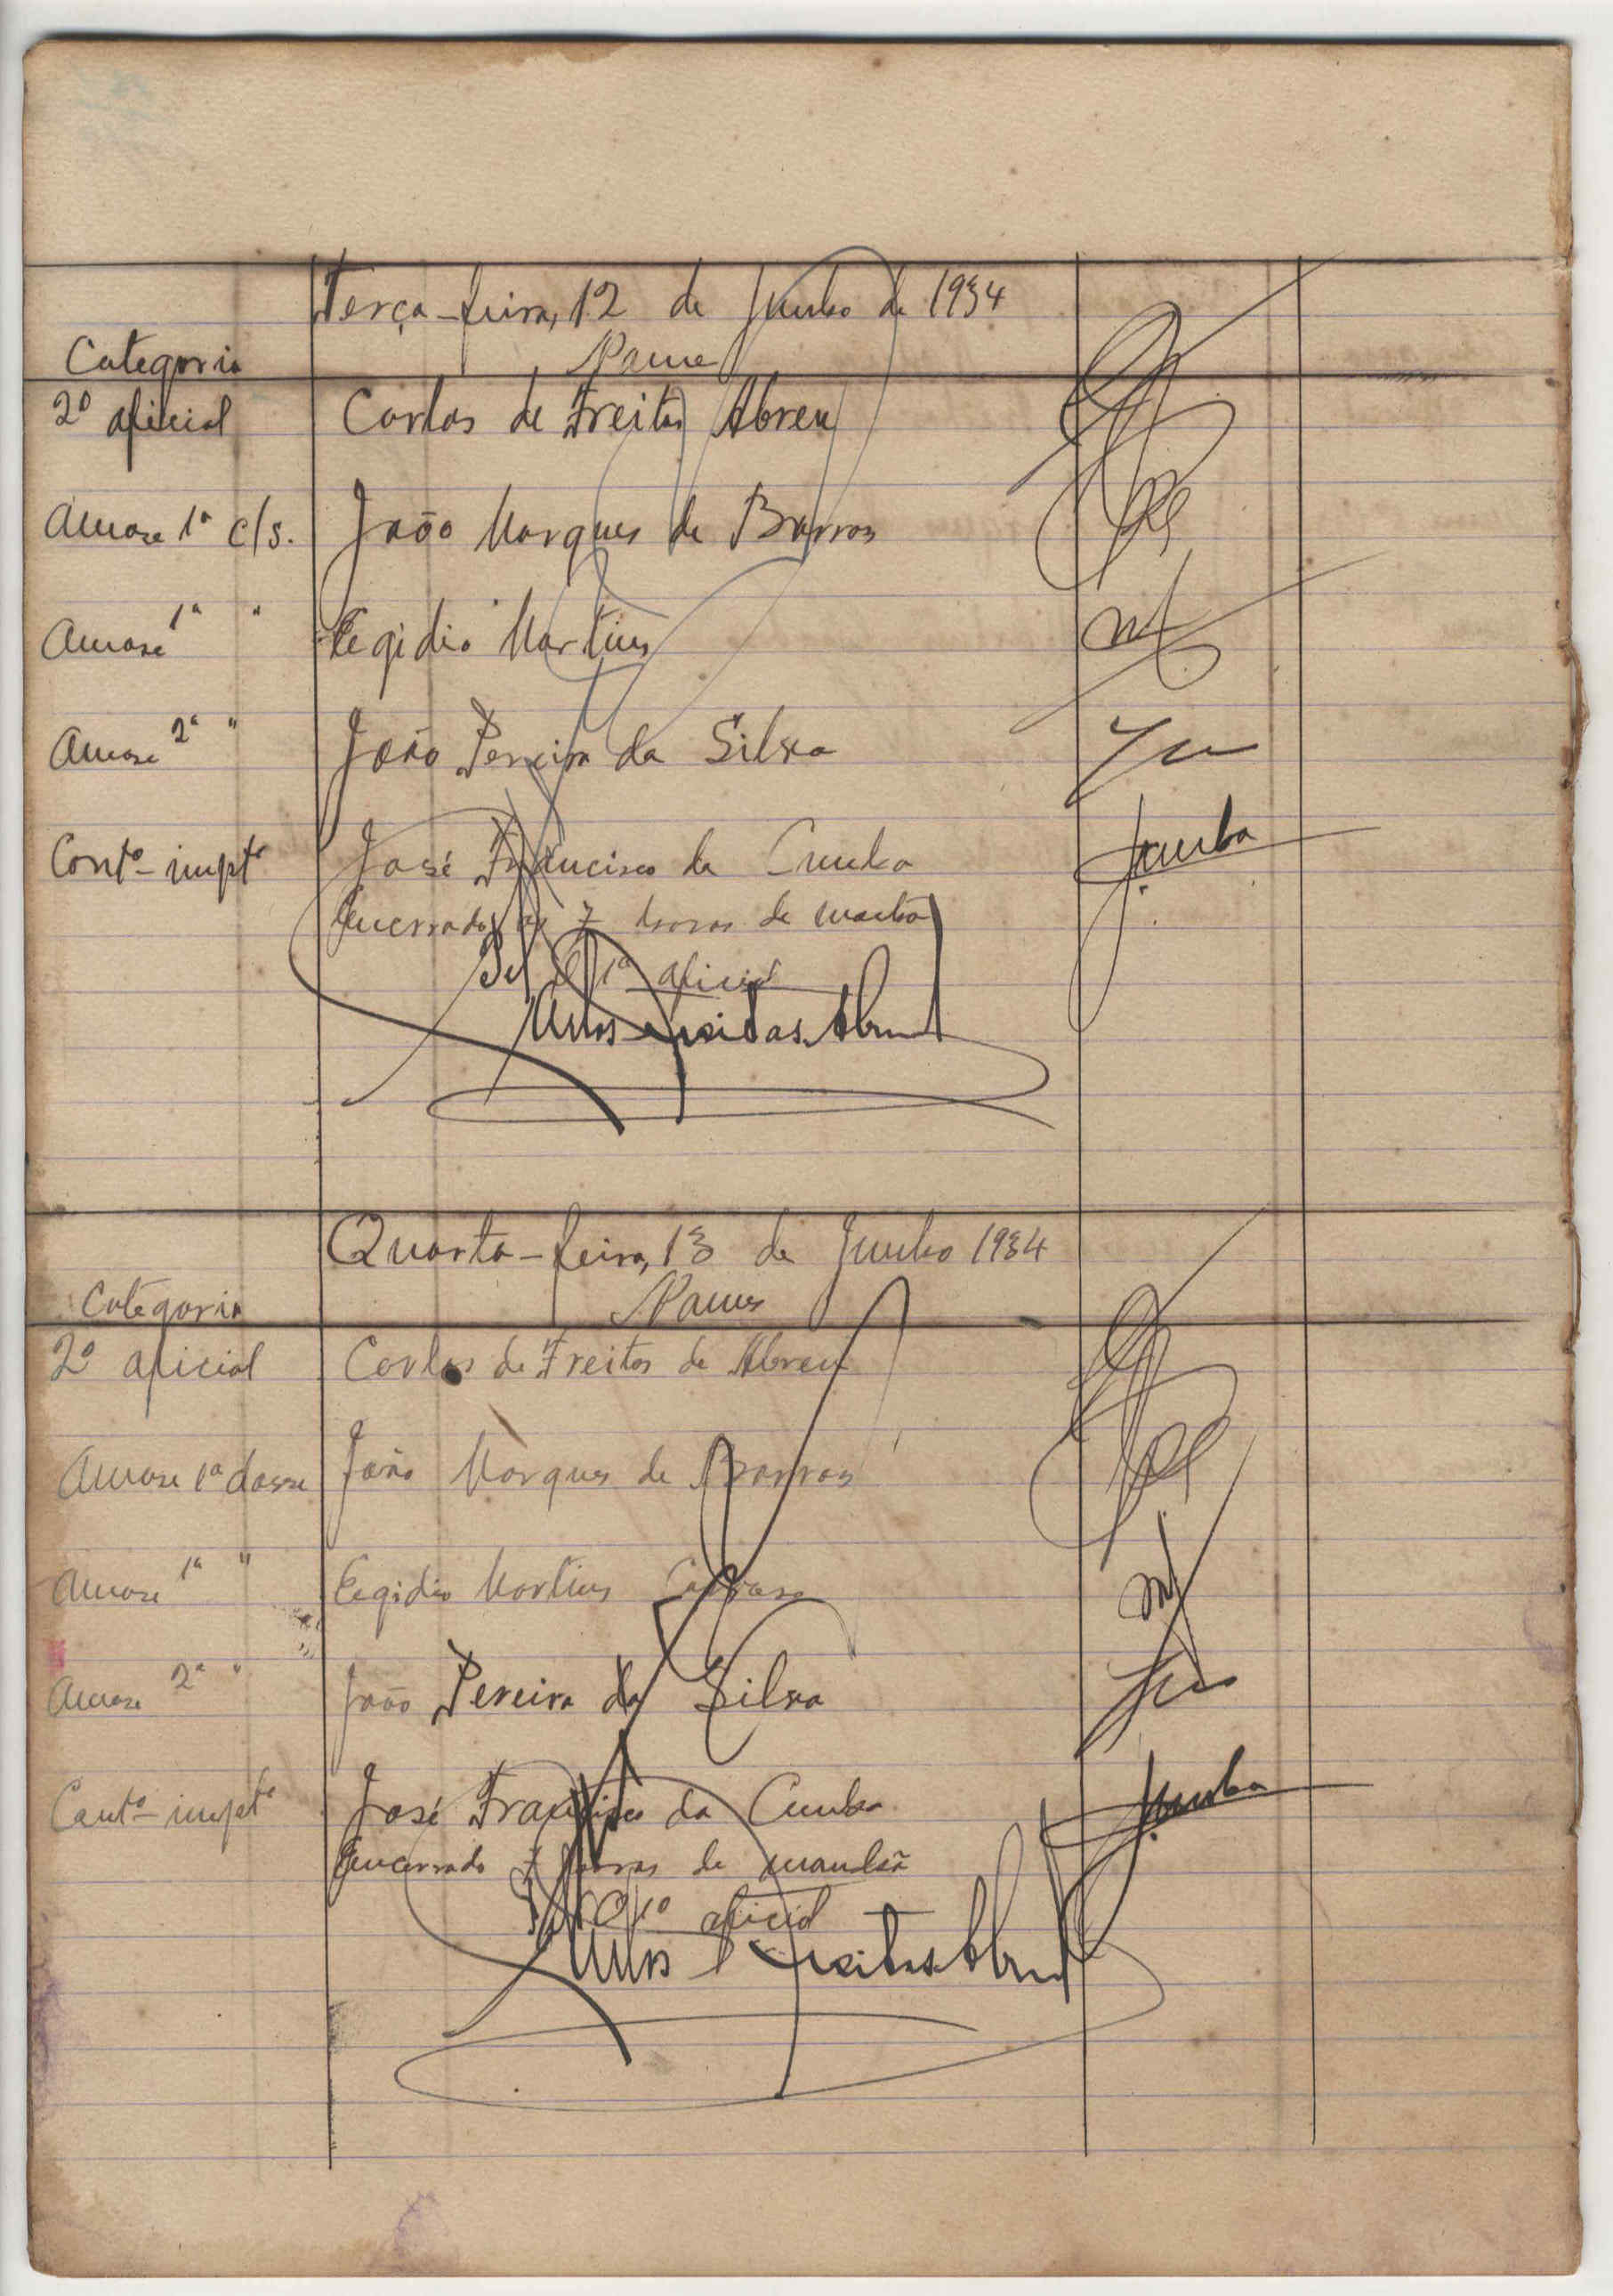 Terça-feira, 12 de Junho de 1934
Categoria Nome
2º oficial Carlos de Freitas Abreu
1ª cls. João Marques de Barros
1ª " Egidio Martins
2ª " João Pereira da Silva
Contº impte José Francisco da Cunha
JCunha
Encerrado as 7 horas da manhã
O 1º oficial
Carlos Freitas Abreu
Quarta-feira, 13 de Junho 1934
Categoria Nomes
2º oficial Carlos de Freitas de Abreu
1ª classe João Marques de Barros
1ª " Egidio Martins
2ª " João Pereira da Silva
Contº impte José Francisco da Cunha
JCunha
Encerrado 7 horas da manhã
O 1º oficial
Carlos Freitas Abreu